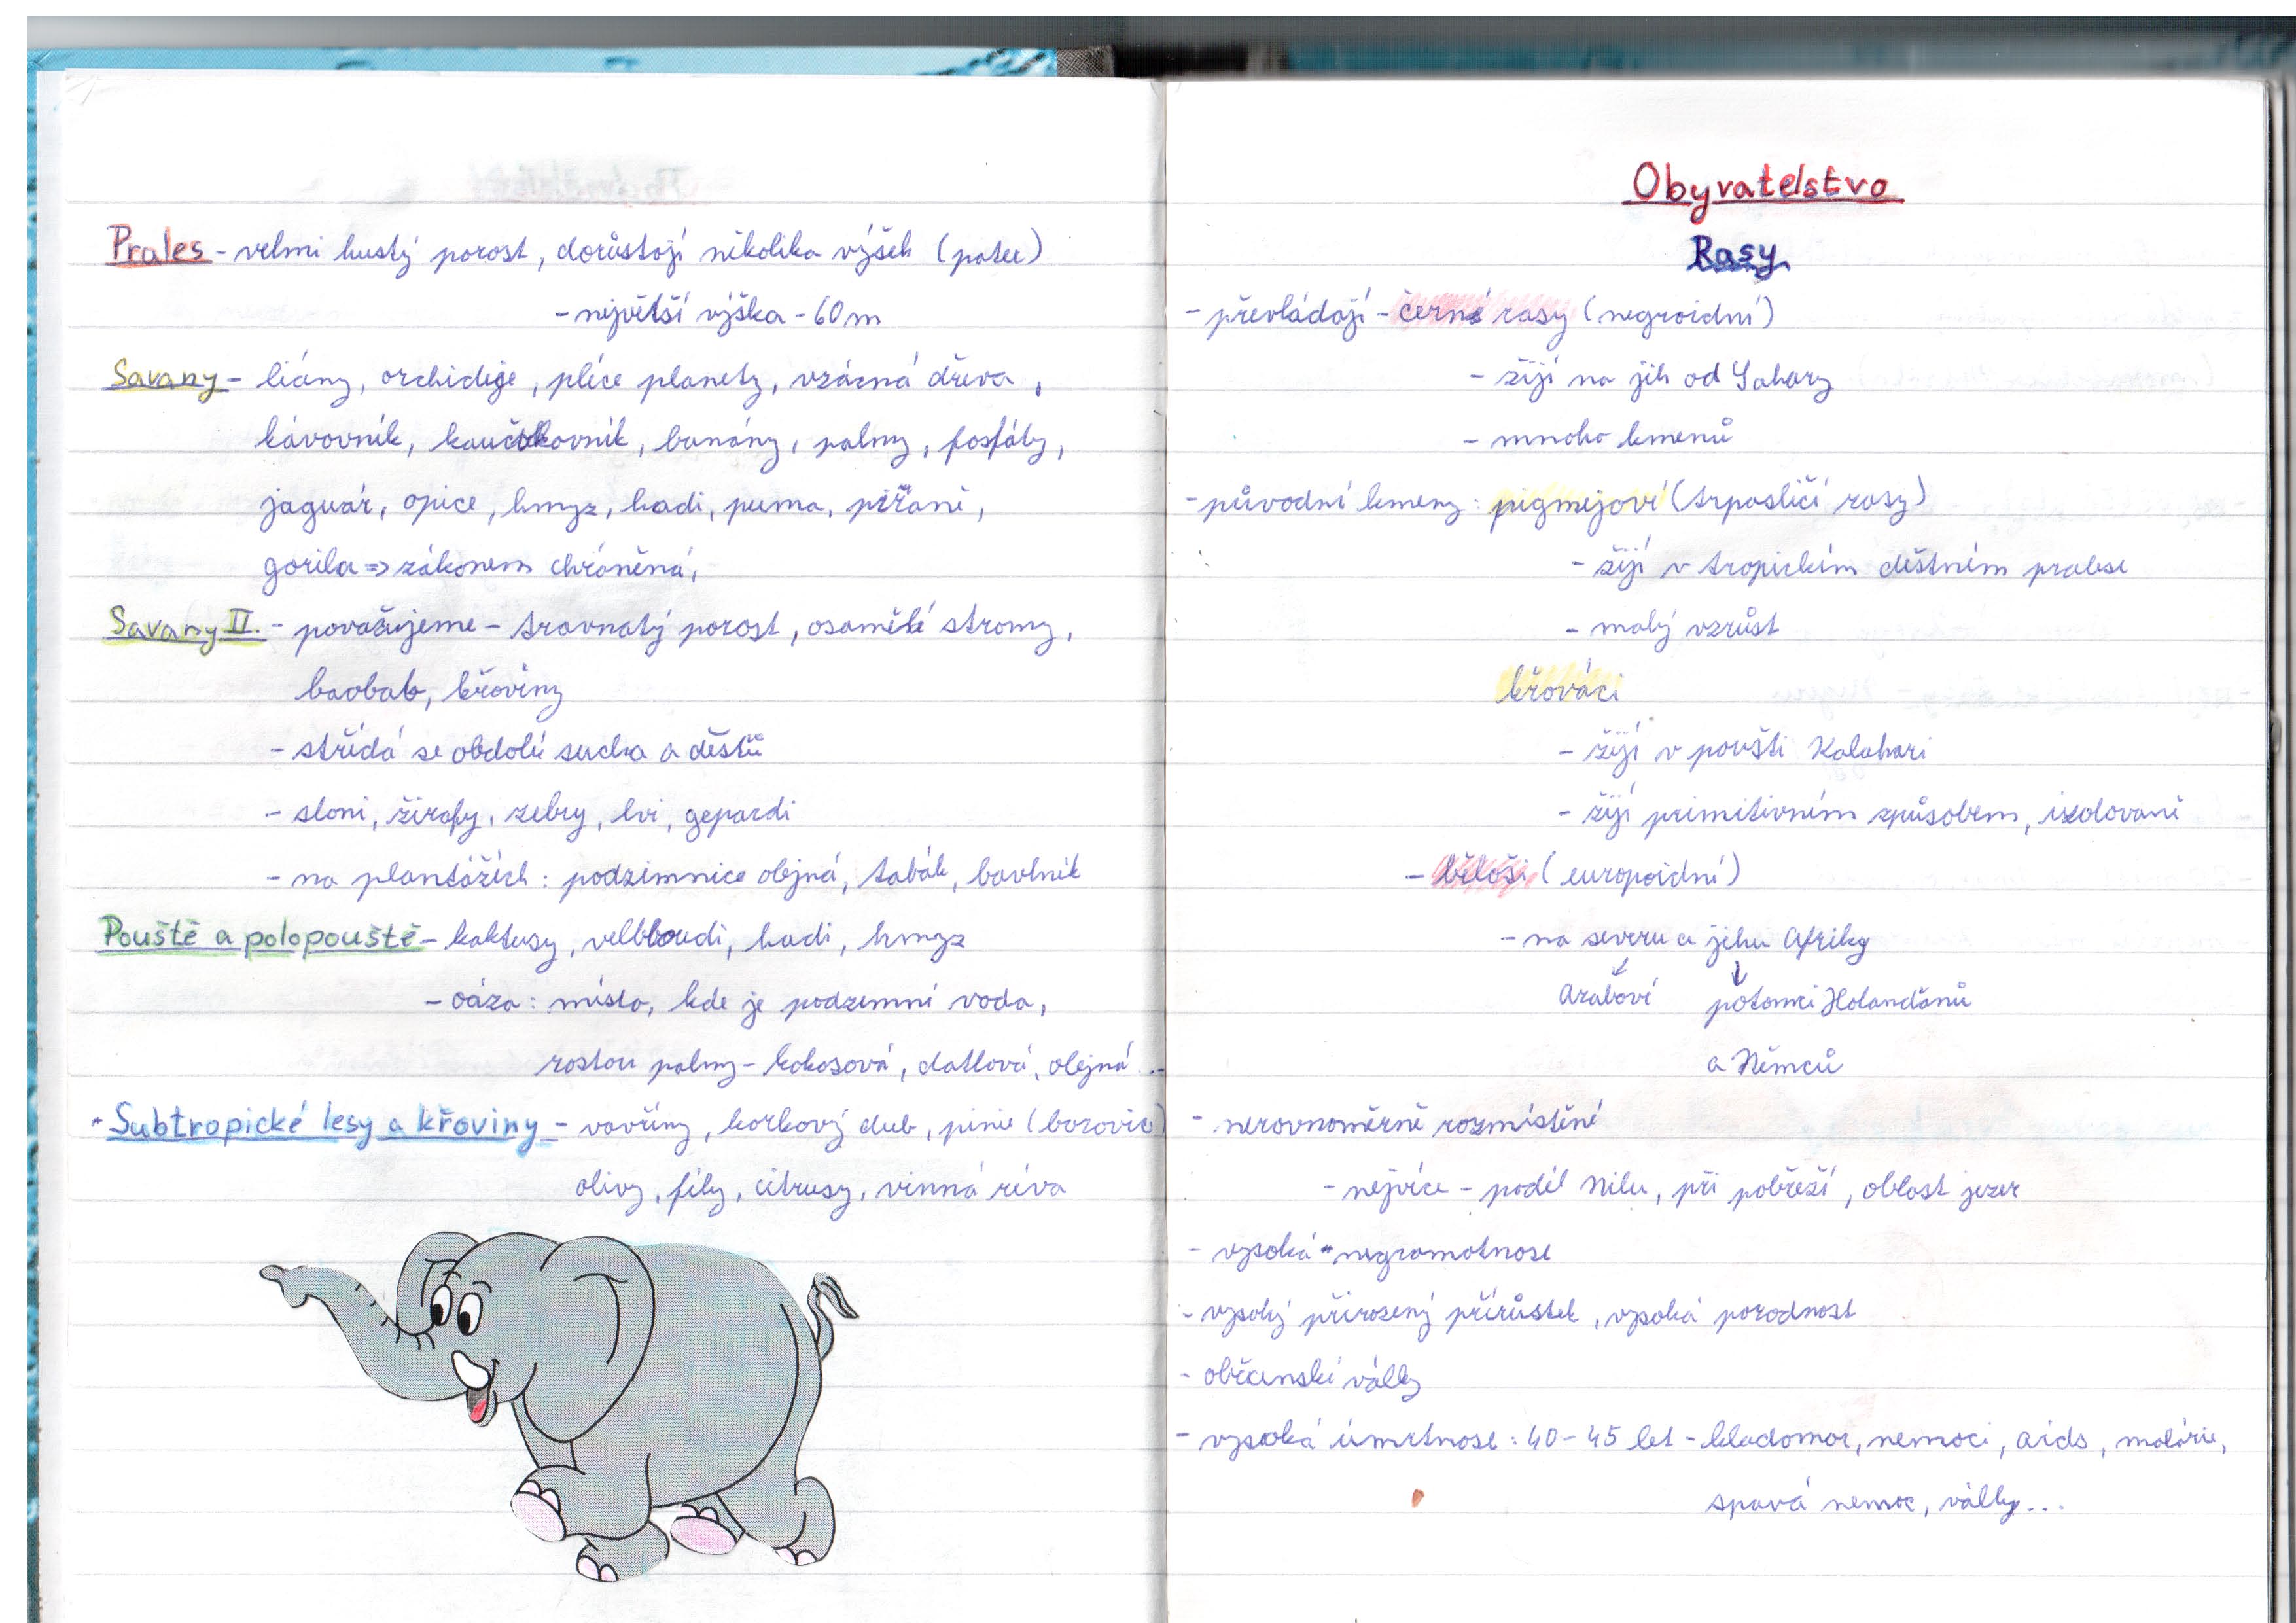 Prales - velmi hustý porost, dorůstají několika výšek (pater)
- největší výška - 60m
Savany - liány, orchideje, plíce planety, vzácná dřeva,
kávovník, kaučukovník, banány, palmy, fosfáty,
jaguár, opice, hmyz, hadi, puma, piraně,
gorila => zákonem chráněná,
Savany II. - považujeme - travnatý porost, osamělé stromy,
baobab, křoviny
- střídá se období sucha a dešťů
- sloni, žirafy, zebry, lvi, gepardi
- na plantážích: podzimnice olejná, tabák, bavlník
Pouště a polopouště - kaktusy, velbloudi, hadi, hmyz
- oáza: místo, kde je podzemní voda,
rostou palmy - kokosová, datlová, olejná...
- Subtropické lesy a křoviny - vavříny, korkový dub, pinie (borovice)
olivy, fíky, citrusy, vinná réva
Obyvatelstvo
Rasy
- převládají - černé rasy (negroidní)
- žijí na jih od Sahary
- mnoho kmenů
- původní kmeny: pigmejové (trpasličí rasy)
- žijí v tropickém deštném pralese
- malý vzrůst
křováci
- žijí v poušti Kalahari
- žijí primitivním způsobem, izolovaně
- běloši (europoidní)
- na severu a jihu Afriky
↓ ↓
Arabové potomci Holanďanů
a Němců
- nerovnoměrně rozmístěné
- nejvíce - podél Nilu, při pobřeží, oblast jezer
- vysoká negramotnost
- vysoký přirozený přírůstek, vysoká porodnost
- občanské války
- vysoká úmrtnost: 40-45 let - hladomor, nemoci, aids, malárie,
spavá nemoc, války...